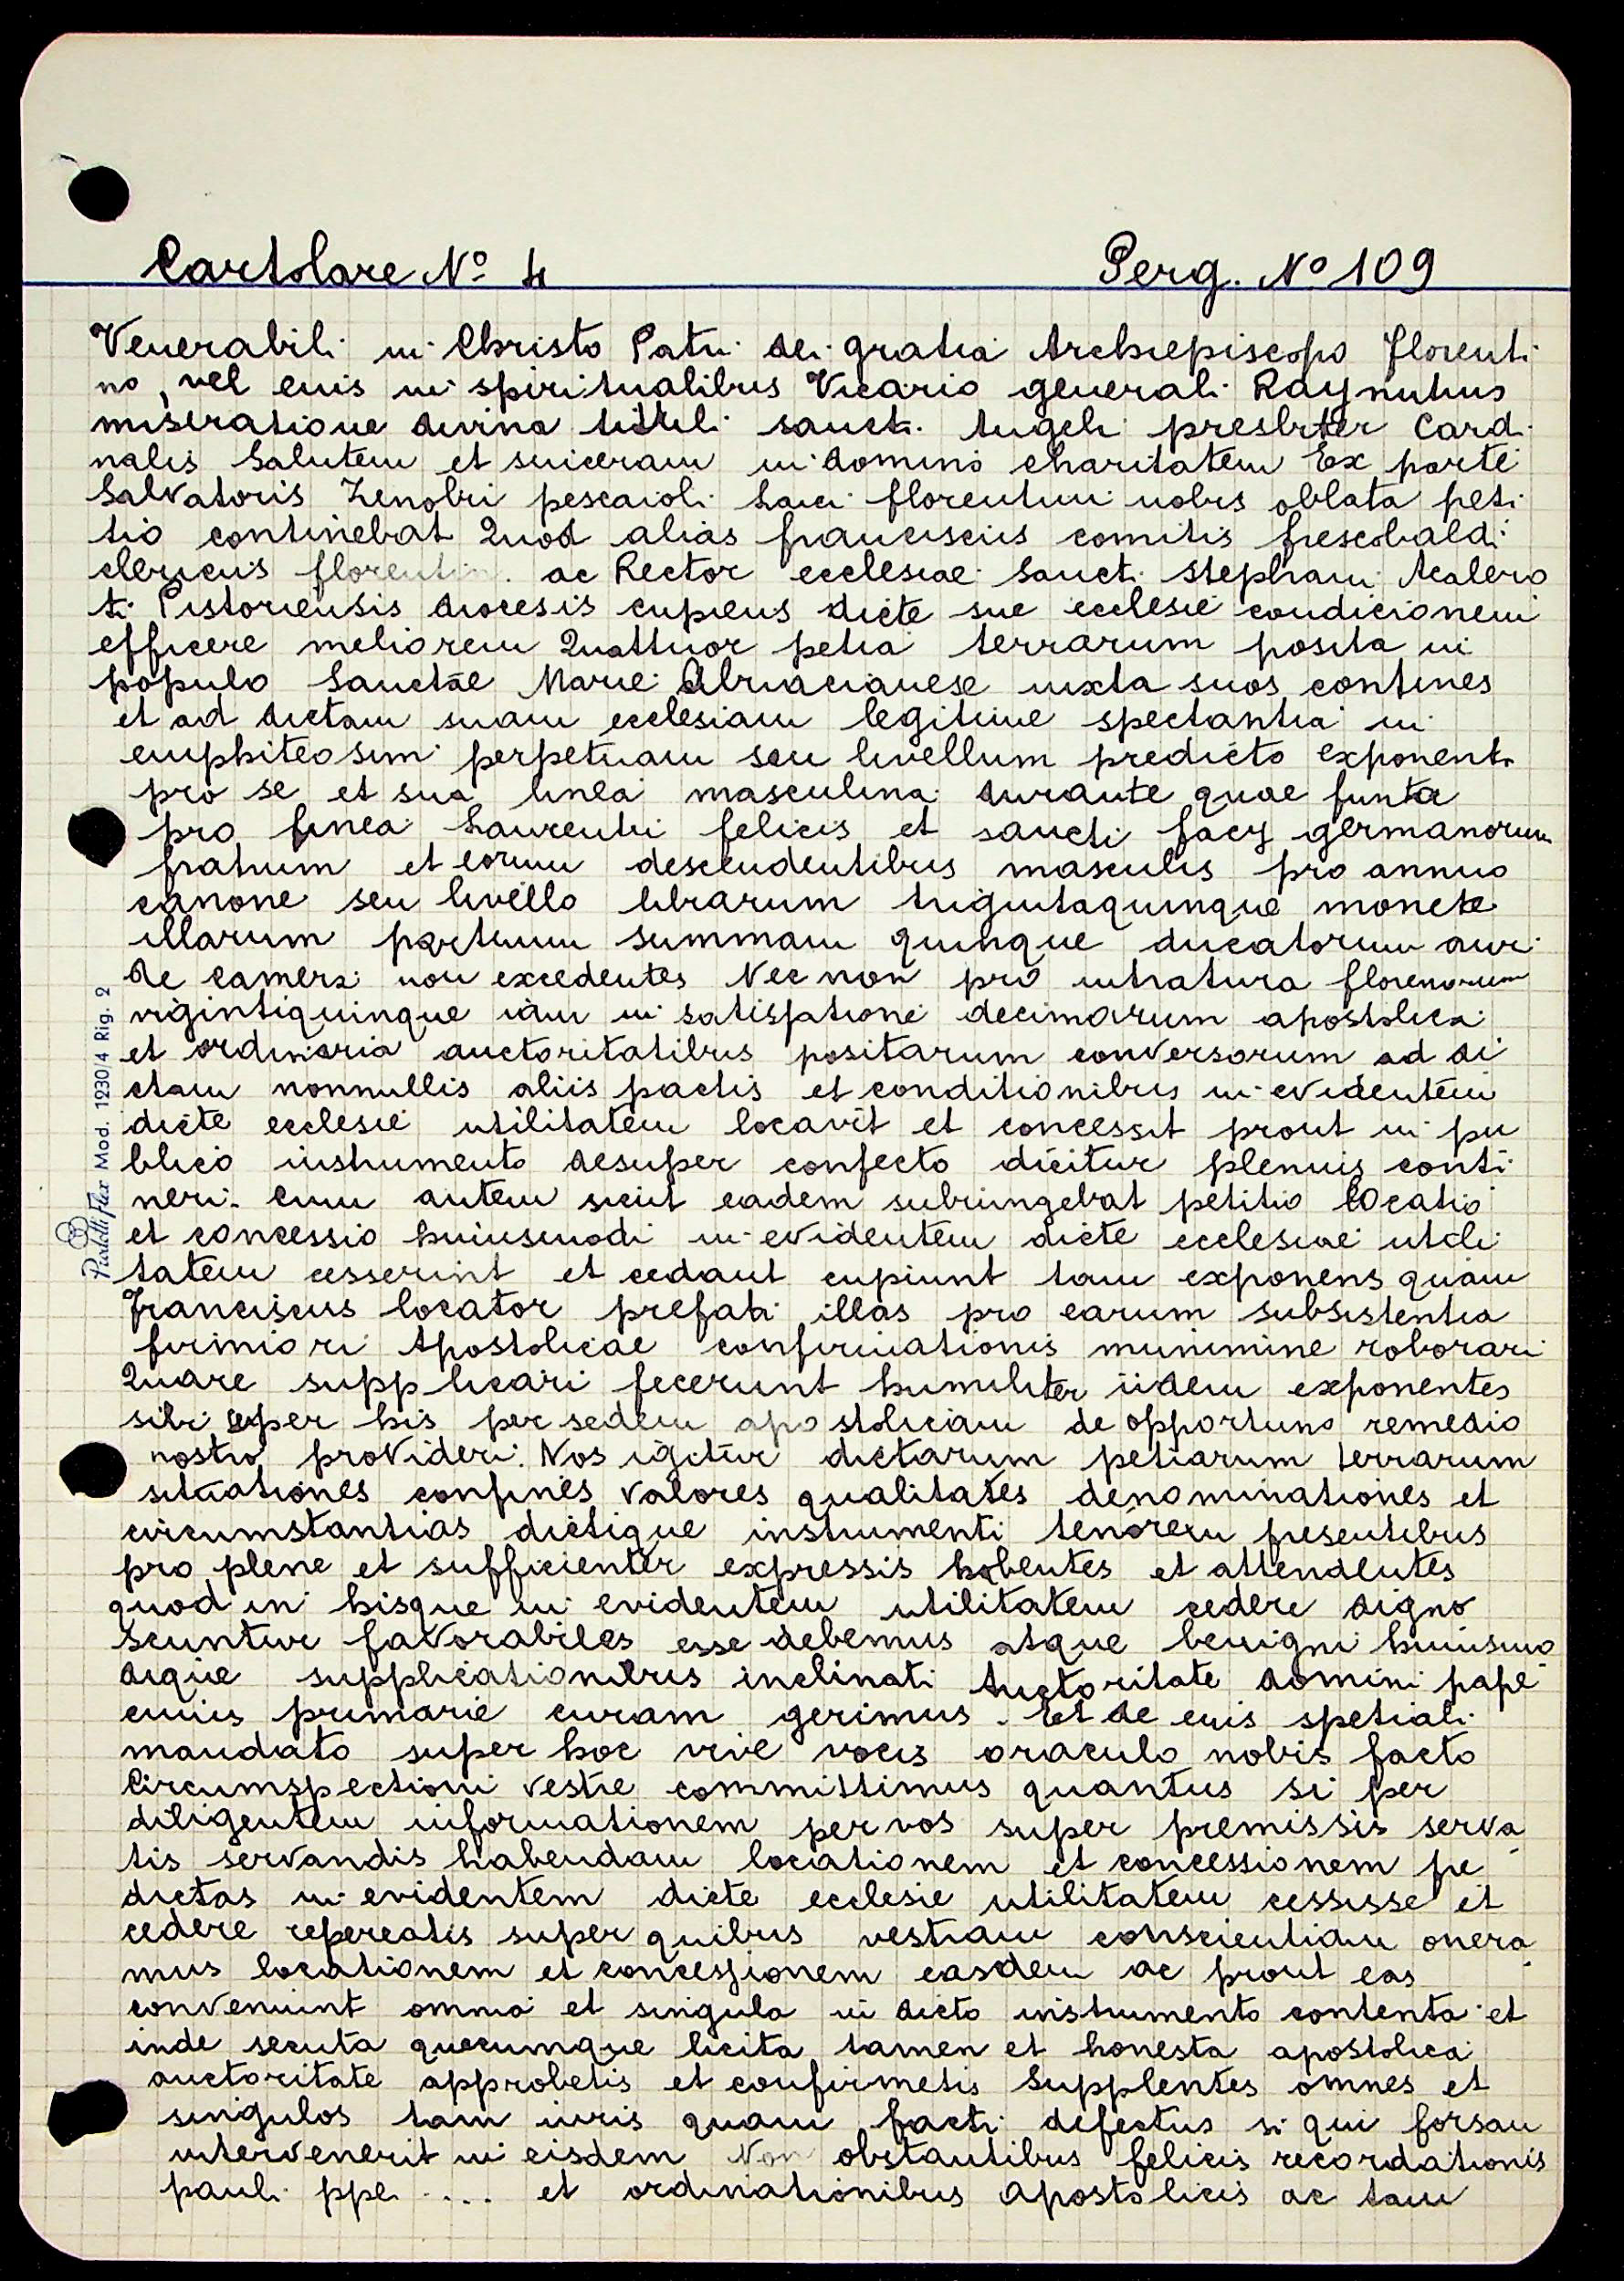 Cartolare N° 4 Perg. N° 109
Venerabili in Christo Patri dei gratia Archiepiscopo florenti
no, vel euis in spiritualibus Vicario generali Raynutius
miseratione divina tittuli sancti Angeli presbiter Cardi
nalis Salutem et sinceram in domino charitatem Ex parte
Salvatoris Zenobii pescaioli laici florentini nobis oblata peti
tio continebat Quod alias franciscus comitis frescobaldi
clericus florentin. ac Rector ecclesiae Sancti Stephani Acalero
ti Pistoriensis diocesis cupiens dicte sue ecclesie condicionem
efficere meliorem Quattuor petia terrarum posita in
populo Sanctae Marie Abriacianese iuxta suos confines
et ad dictam suam ecclesiam legitime spectantia in
emphiteosim perpetuam seu livellum predicto exponenti
pro se et sua linea masculina durante quae funta
pro linea Laurentii felicis et sancti facy germanorum
fratrum et eorum descendentibus masculis pro annuo
canone seu livello librarum trigintaquinque monete
illarum partium summam quinque ducatorum auri
de camera non excedentes Nec non pro intratura florenorum
vigintiquinque iam in satisfatione decimarum apostolica
et ordinaria auctoritatibus positarum conversorum ad di
ctam nonnullis aliis pactis et conditionibus in evidentem
dicte ecclesie utilitatem locavit et concessit prout in pu
blico instrumento desuper confecto dicitur plenius conti
neri. Cum autem sicut eadem subiungebat petitio locatio
et concessio huiusmodi in evidentem dicte ecclesiae utili
tatem cesserint et cedant cupiunt tam exponens quam
Franciscus locator prefati illas pro earum subsistentia
firmiori Apostolicae confirmationis munimine roborari
Quare supplicari fecerunt humiliter iidem exponentes
sibi super his per sedem apostolicam de opportuno remedio
nostro provideri. Nos igitur dictarum petiarum terrarum
situationes confines valores qualitates denominationes et
circumstantias dictique instrumenti tenorem presentibus
pro plene et sufficienter expressis habentes et attendentes
quod in hisque in evidentem utilitatem cedere digno
scuntur favorabiles esse debemus atque benigni huiusmo
dique supplicationibus inclinati Auctoritate domini pape
cuius primarie curam gerimus. Et de euis spetiali
mandato super hoc vive vocis oraculo nobis facto
Circumspectioni vestre committimus quantus si per
diligentem informationem per vos super premissis serva
tis servandis habendam locationem et concessionem pre
dictas in evidentem dicte ecclesie utilitatem cessisse et
cedere repereatis super quibus vestram conscientiam onera
mus locationem et concessionem easdem ac prout eas
conveniunt omnia et singula in dicto instrumento contenta et
inde secuta quecumque licita tamen et honesta apostolica
auctoritate approbetis et confirmetis Supplentes omnes et
singulos tam iuris quam facti defectus si qui forsan
intervenerit in eisdem Non obstantibus felicis recordationis
pauli ppe .... et ordinationibus Apostolicis ac tam
Mod. 1230/4 Rig. 2